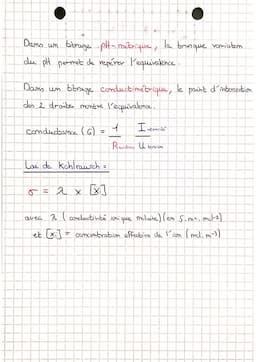 Dans un titrage pH-métrique, la brusque variation
du pH permet de repérer l'équivalence.
Dans un titrage conductimétrique, le point d'intersection
des 2 droites montre l'équivalence.
conductance (G) = 1 I intensité
Résistance U tension
Loi de Kohlrausch :
σ = λ x [X]
avec λ (conductivité ionique molaire) (en S.m².mol⁻¹)
et [X] = concentration effective de l'ion (mol.m⁻³)